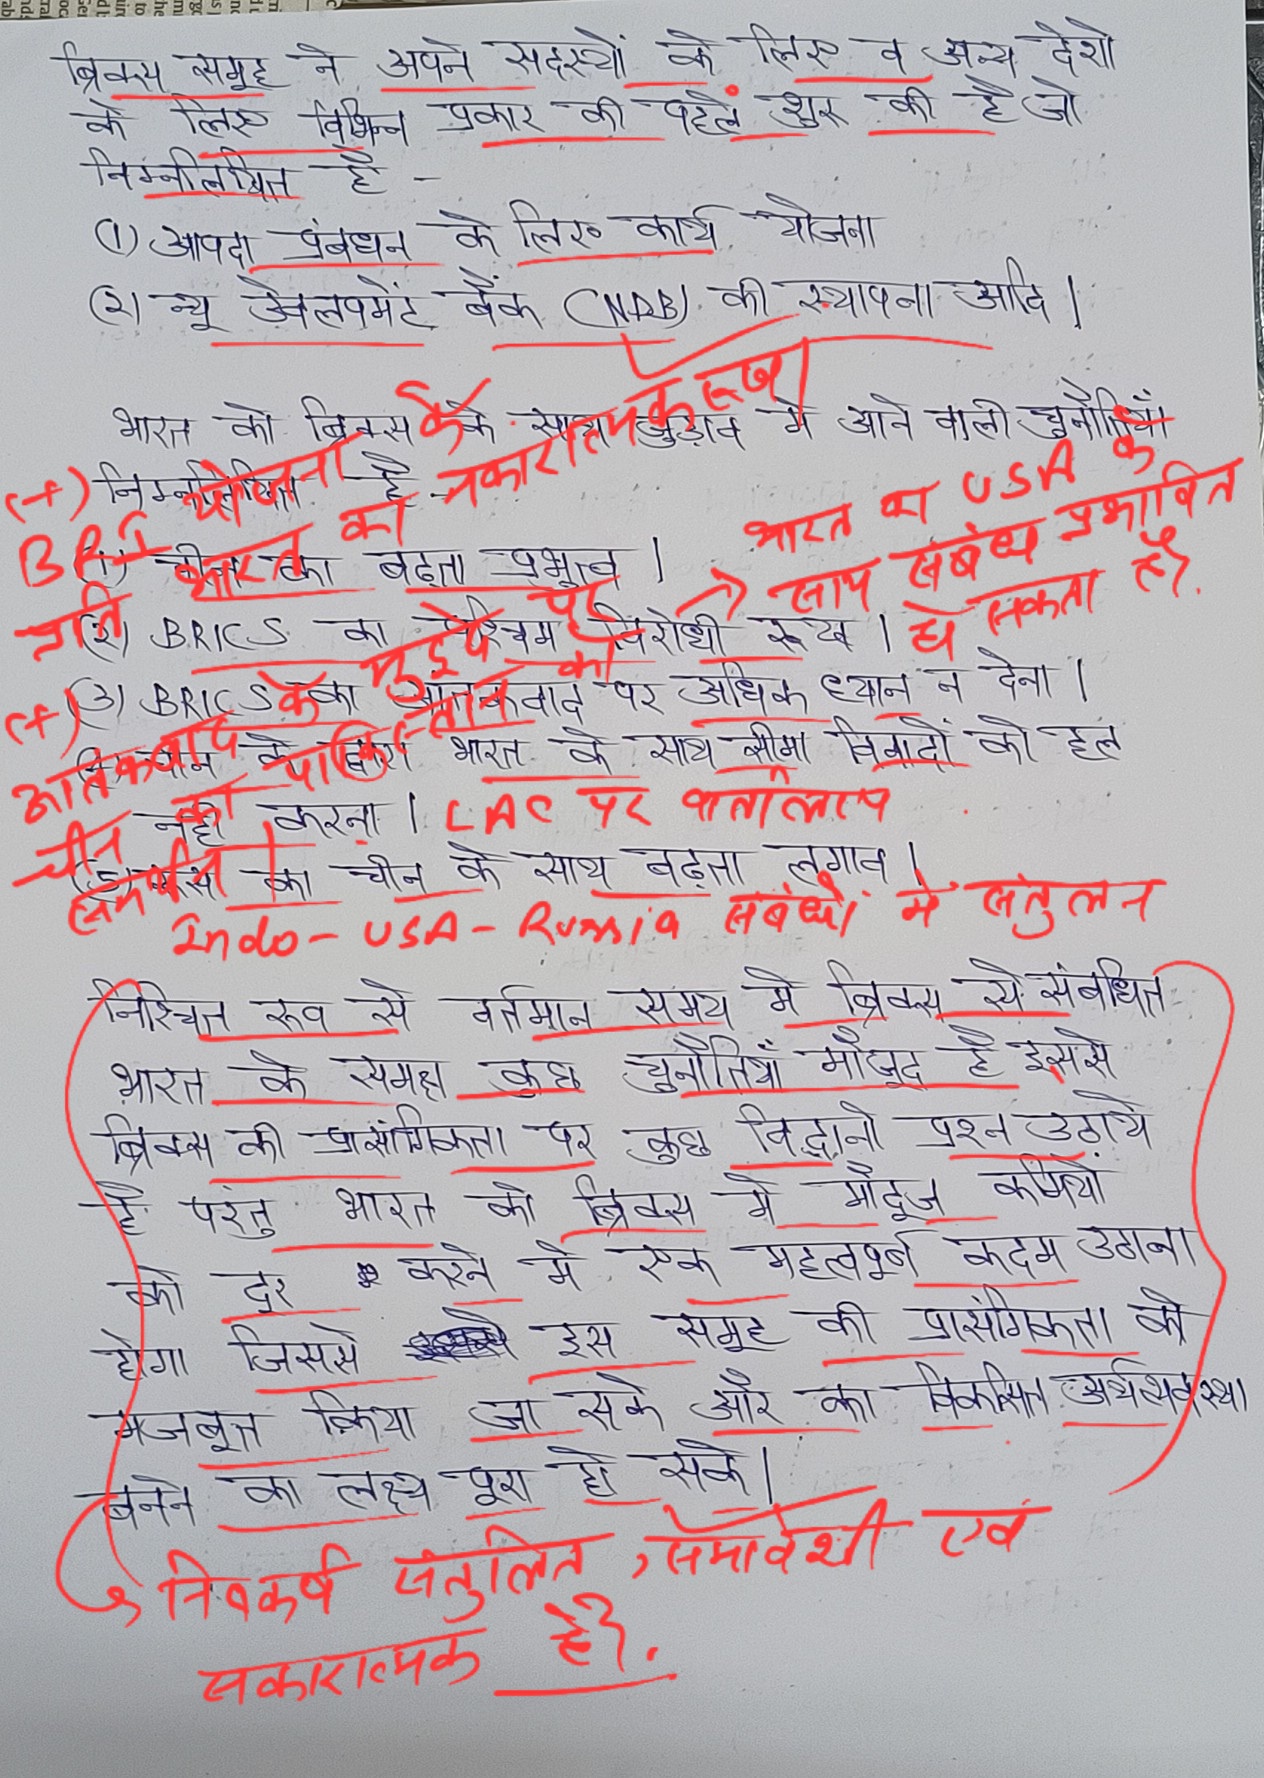 ब्रिक्स समूह ने अपने सदस्यों के लिए व अन्य देशो
के लिए विभिन्न प्रकार की पहलें शुरू की है जो
निम्नलिखित है -
(1) आपदा प्रंबधन के लिए कार्य योजना
(2) न्यू डेवलपमेंट बैंक (NDB) की स्थापना आदि।
भारत को ब्रिक्स के साथ जुड़ाव मे आने वाली चुनौतियाँ
निम्नलिखित है -
(+) BRI योजना के
प्रति भारत का नकारात्मक रूख।
(1) चीन का बढ़ता प्रभुत्व।
(2) BRICS का पश्चिम विरोधी रूख।
→ भारत का USA के
साथ संबंध प्रभावित
हो सकता है।
(3) BRICS का आतंकवाद पर अधिक ध्यान न देना।
(+) आतंकवाद के मुद्दे पर
चीन का पाकिस्तान को
समर्थन।
चीन के द्वारा भारत के साथ सीमा विवादों को हल
नही करना। LAC पर वार्तालाप
(5) रूस का चीन के साथ बढ़ता लगाव।
Indo - USA - Russia संबंधों मे संतुलन
निश्चित रूव से वर्तमान समय मे ब्रिक्स से संबधित
भारत के समक्ष कुछ चुनौतियाँ मौजूद है इससे
ब्रिक्स की प्रासंगिकता पर कुछ विद्वानो प्रश्न उठाये
है परंतु भारत को ब्रिक्स मे मौदूज कमियों
को दूर करने मे एक महत्वपूर्ण कदम उठाना
होगा जिससे इस समूह की प्रासंगिकता को
मजबूत किया जा सके और का विकसित अर्थव्यवस्था
बनने का लक्ष्य पूरा हो सके।
निष्कर्ष संतुलित, समावेशी एवं
सकारात्मक है।